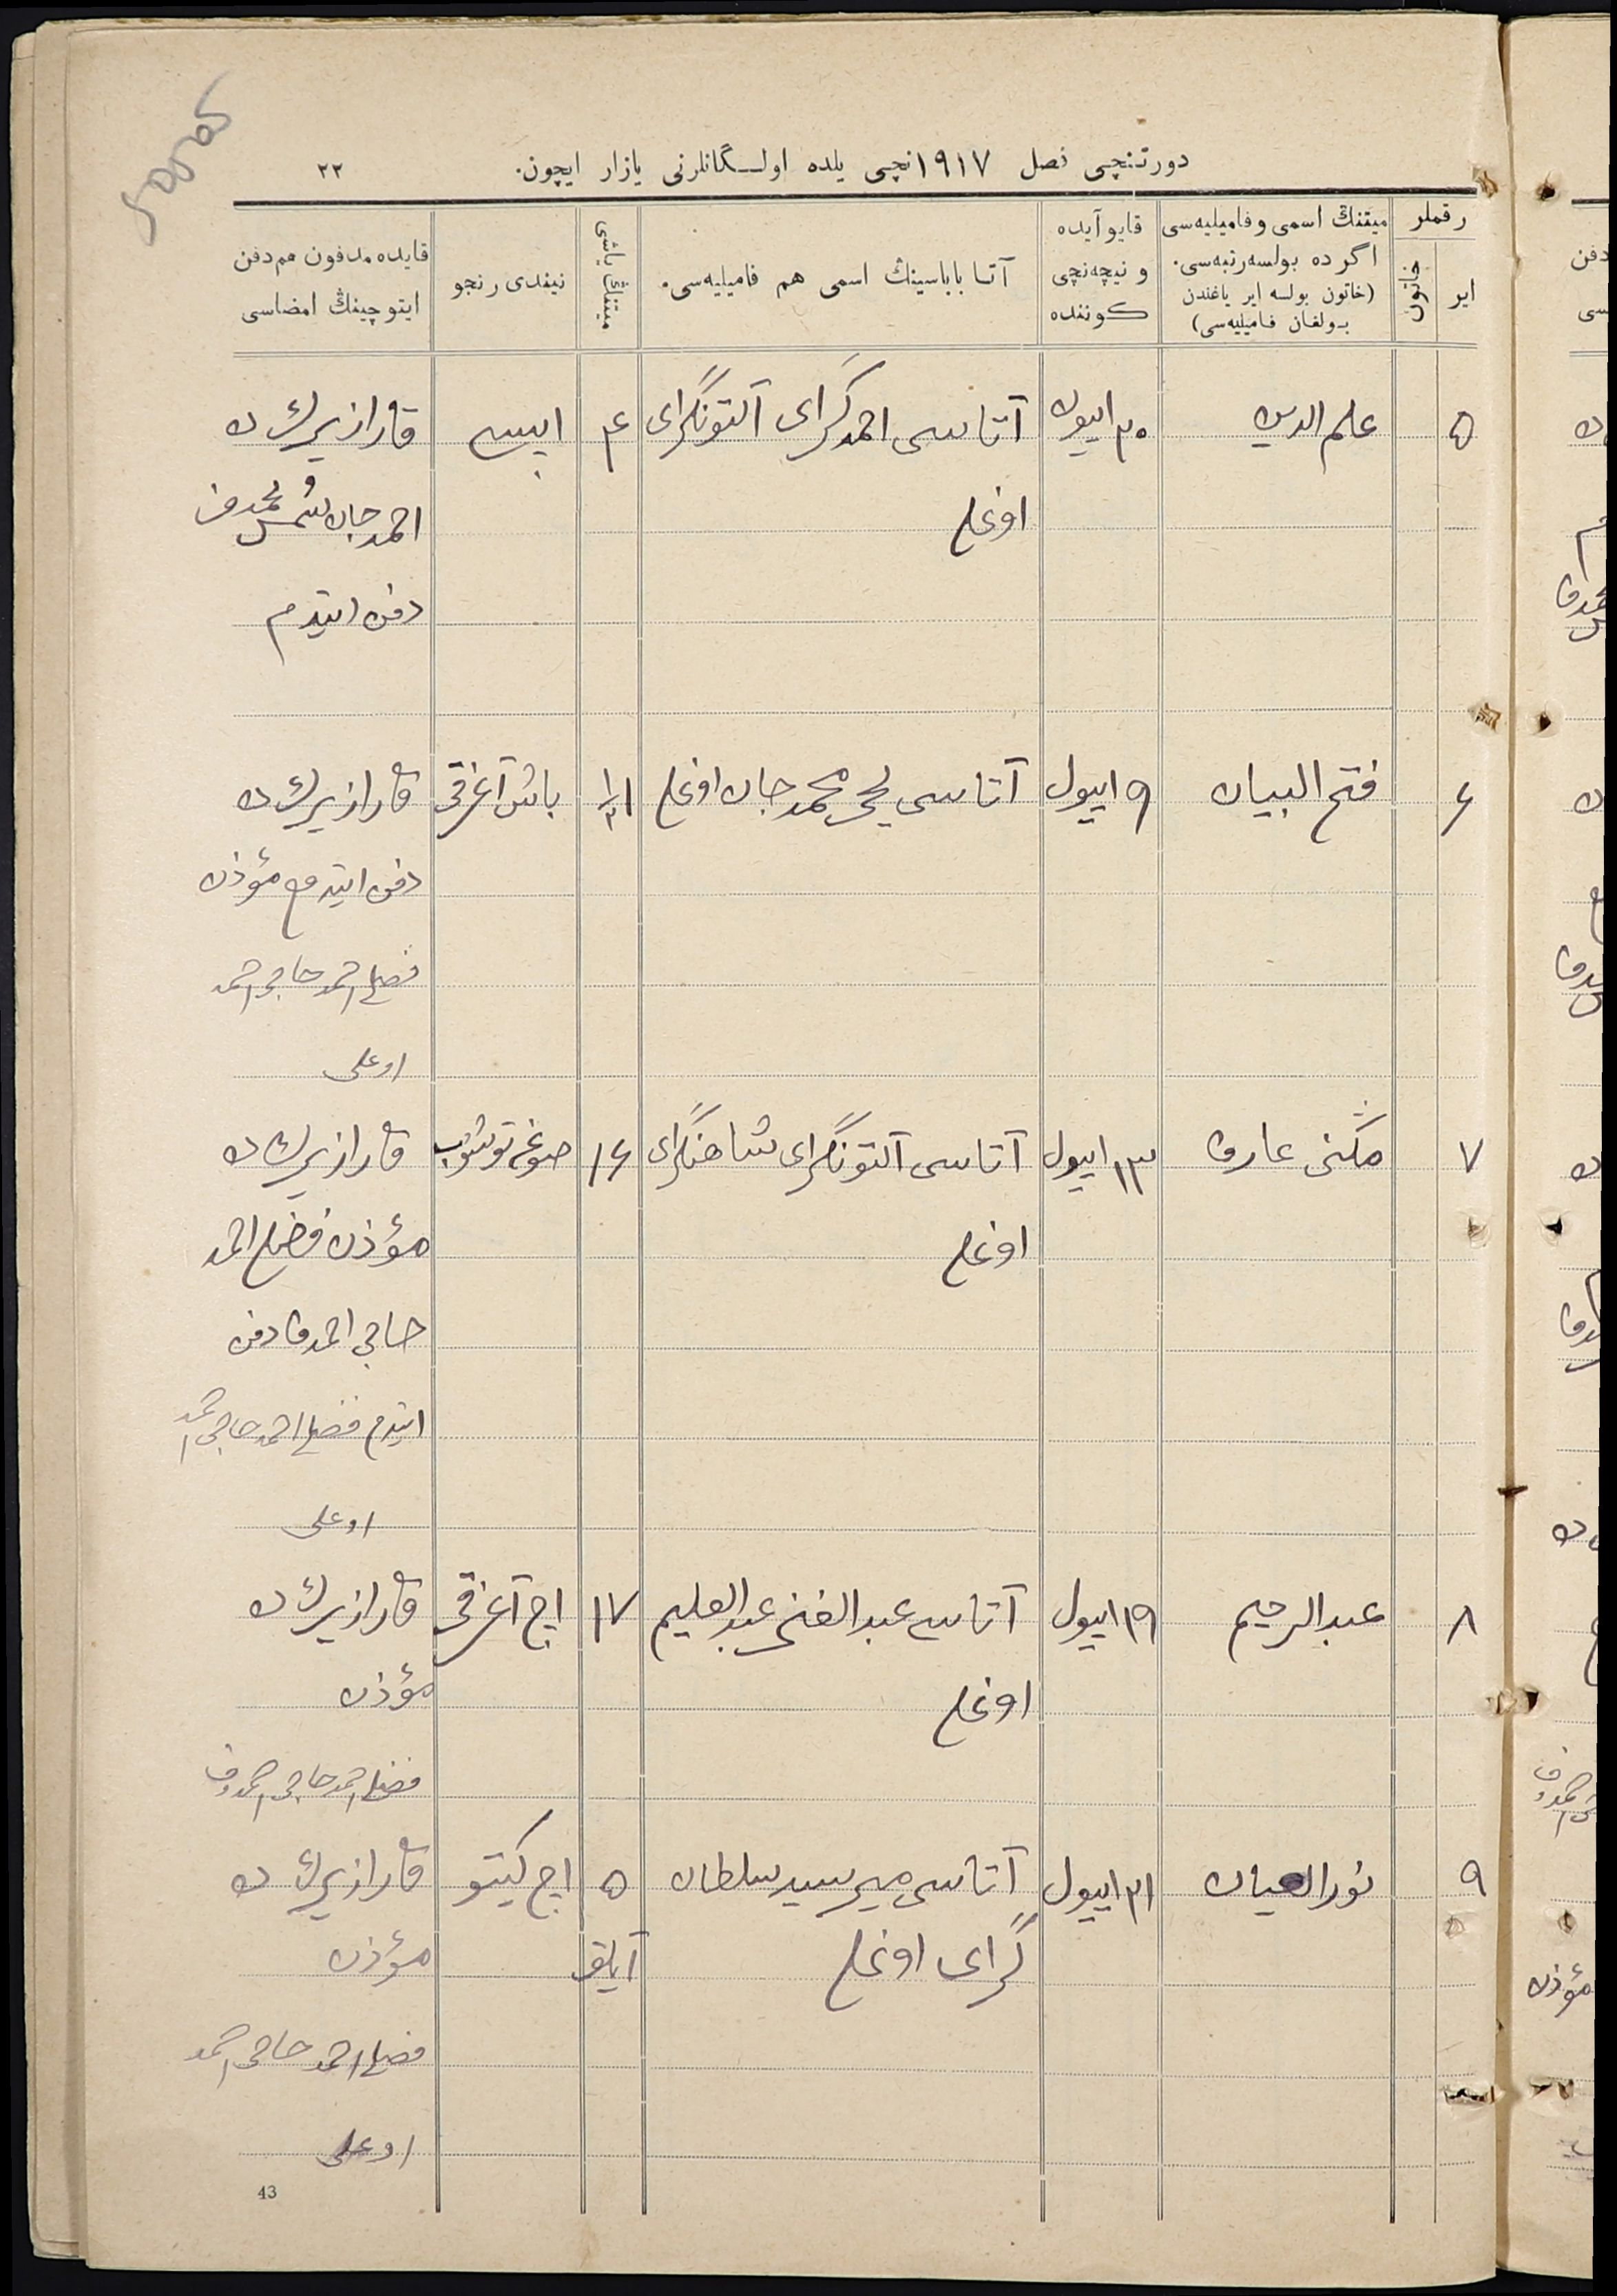 دورتنچی فصل ۱۹۱۷نچی یلده اولـگانلرنی یازار ایچون.
۲۲
رقملر
ایر
خاتون
میتنڭ اسمی و فامیلیه‌سی
اگر ده بولسه رتبه‌سی.
(خاتون بولسه ایر یاغندن
بـولغان فامیلیه‌سی)
قایو آیده
و نیچه‌نچی
کوننده
آتـا باباسینڭ اسمی هم فامیلیه‌سی.
میتنڭ یاشی
نیندی رنجو
قایده مدفون هم دفن
ایتوچینڭ امضاسی
۵ علم الدین ۳۰ ایون آتاسی احمدگرای آلتونگرای ۴ ایسی قارازیرك ده
اوغلی احمدجان شمس محمدوف
دفن ایتدم
۶ فتح البیان ۹ ایول آتاسی یحی محمدجان اوغلی ۱ ۱/۲ باش آغرقی قارازیرك ده
دفن ایتدم مؤذن
فضل احمد حاجی احمد
اوغلی
۷ عارفا ۱۳ ایول آتاسی آلتونگرای شاهنگرای ۱۶ صوغ توشوب قارازیرك ده
اوغلی مؤذن فضل احمد
حاجی احمدوف دفن
ایتدم فضل احمد حاجی احمد
اوغلی
۸ عبدالرحیم ۱۹ ایول آتاسی عبدالغنی عبدالعلیم ۱۷ اچ آغرقی قارازیرك ده
اوغلی مؤذن
فضل احمد حاجی احمدوف
۹ نورالعیان ۲۱ ایول آتاسی میرسید سلطان ۵ اچ کیتو قارازیرك ده
گرای اوغلی آیلق مؤذن
فضل احمد حاجی احمد
اوغلی
43
مؤذن